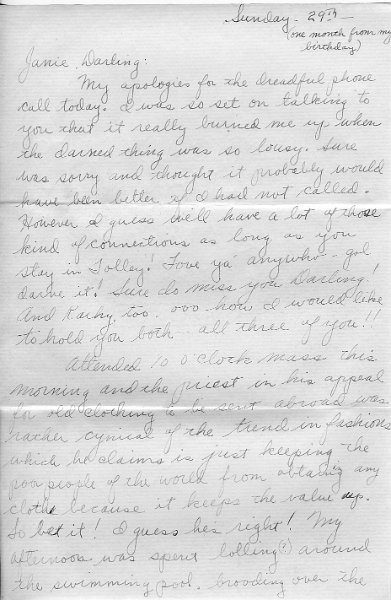 Sunday - 29th -
(one month from my
birthday)
Janie Darling:
My apologies for the dreadful phone
call today. I was so set on talking to
you that it really burned me up when
the darned thing was so lousy. Sure
was sorry and thought it probably would
have been better if I had not called.
However I guess we'll have a lot of those
kind of connections as long as you
stay in Tolley! Love ya anywho - gol
darne it! Sure do miss you Darling!
And too - ooo - how I would like
to hold you both - all three of you!!
Attended 10 o'clock mass this
morning and the priest in his appeal
for old clothing to be sent abroad was
rather cynical of the trend in fashions
which he claims is just keeping the
poor people of the world from obtaing any
clothe because it keeps the value up.
So be it! I guess hes right! My
afternoon was spent lolling(?) around
the swimming pool, brooding over the